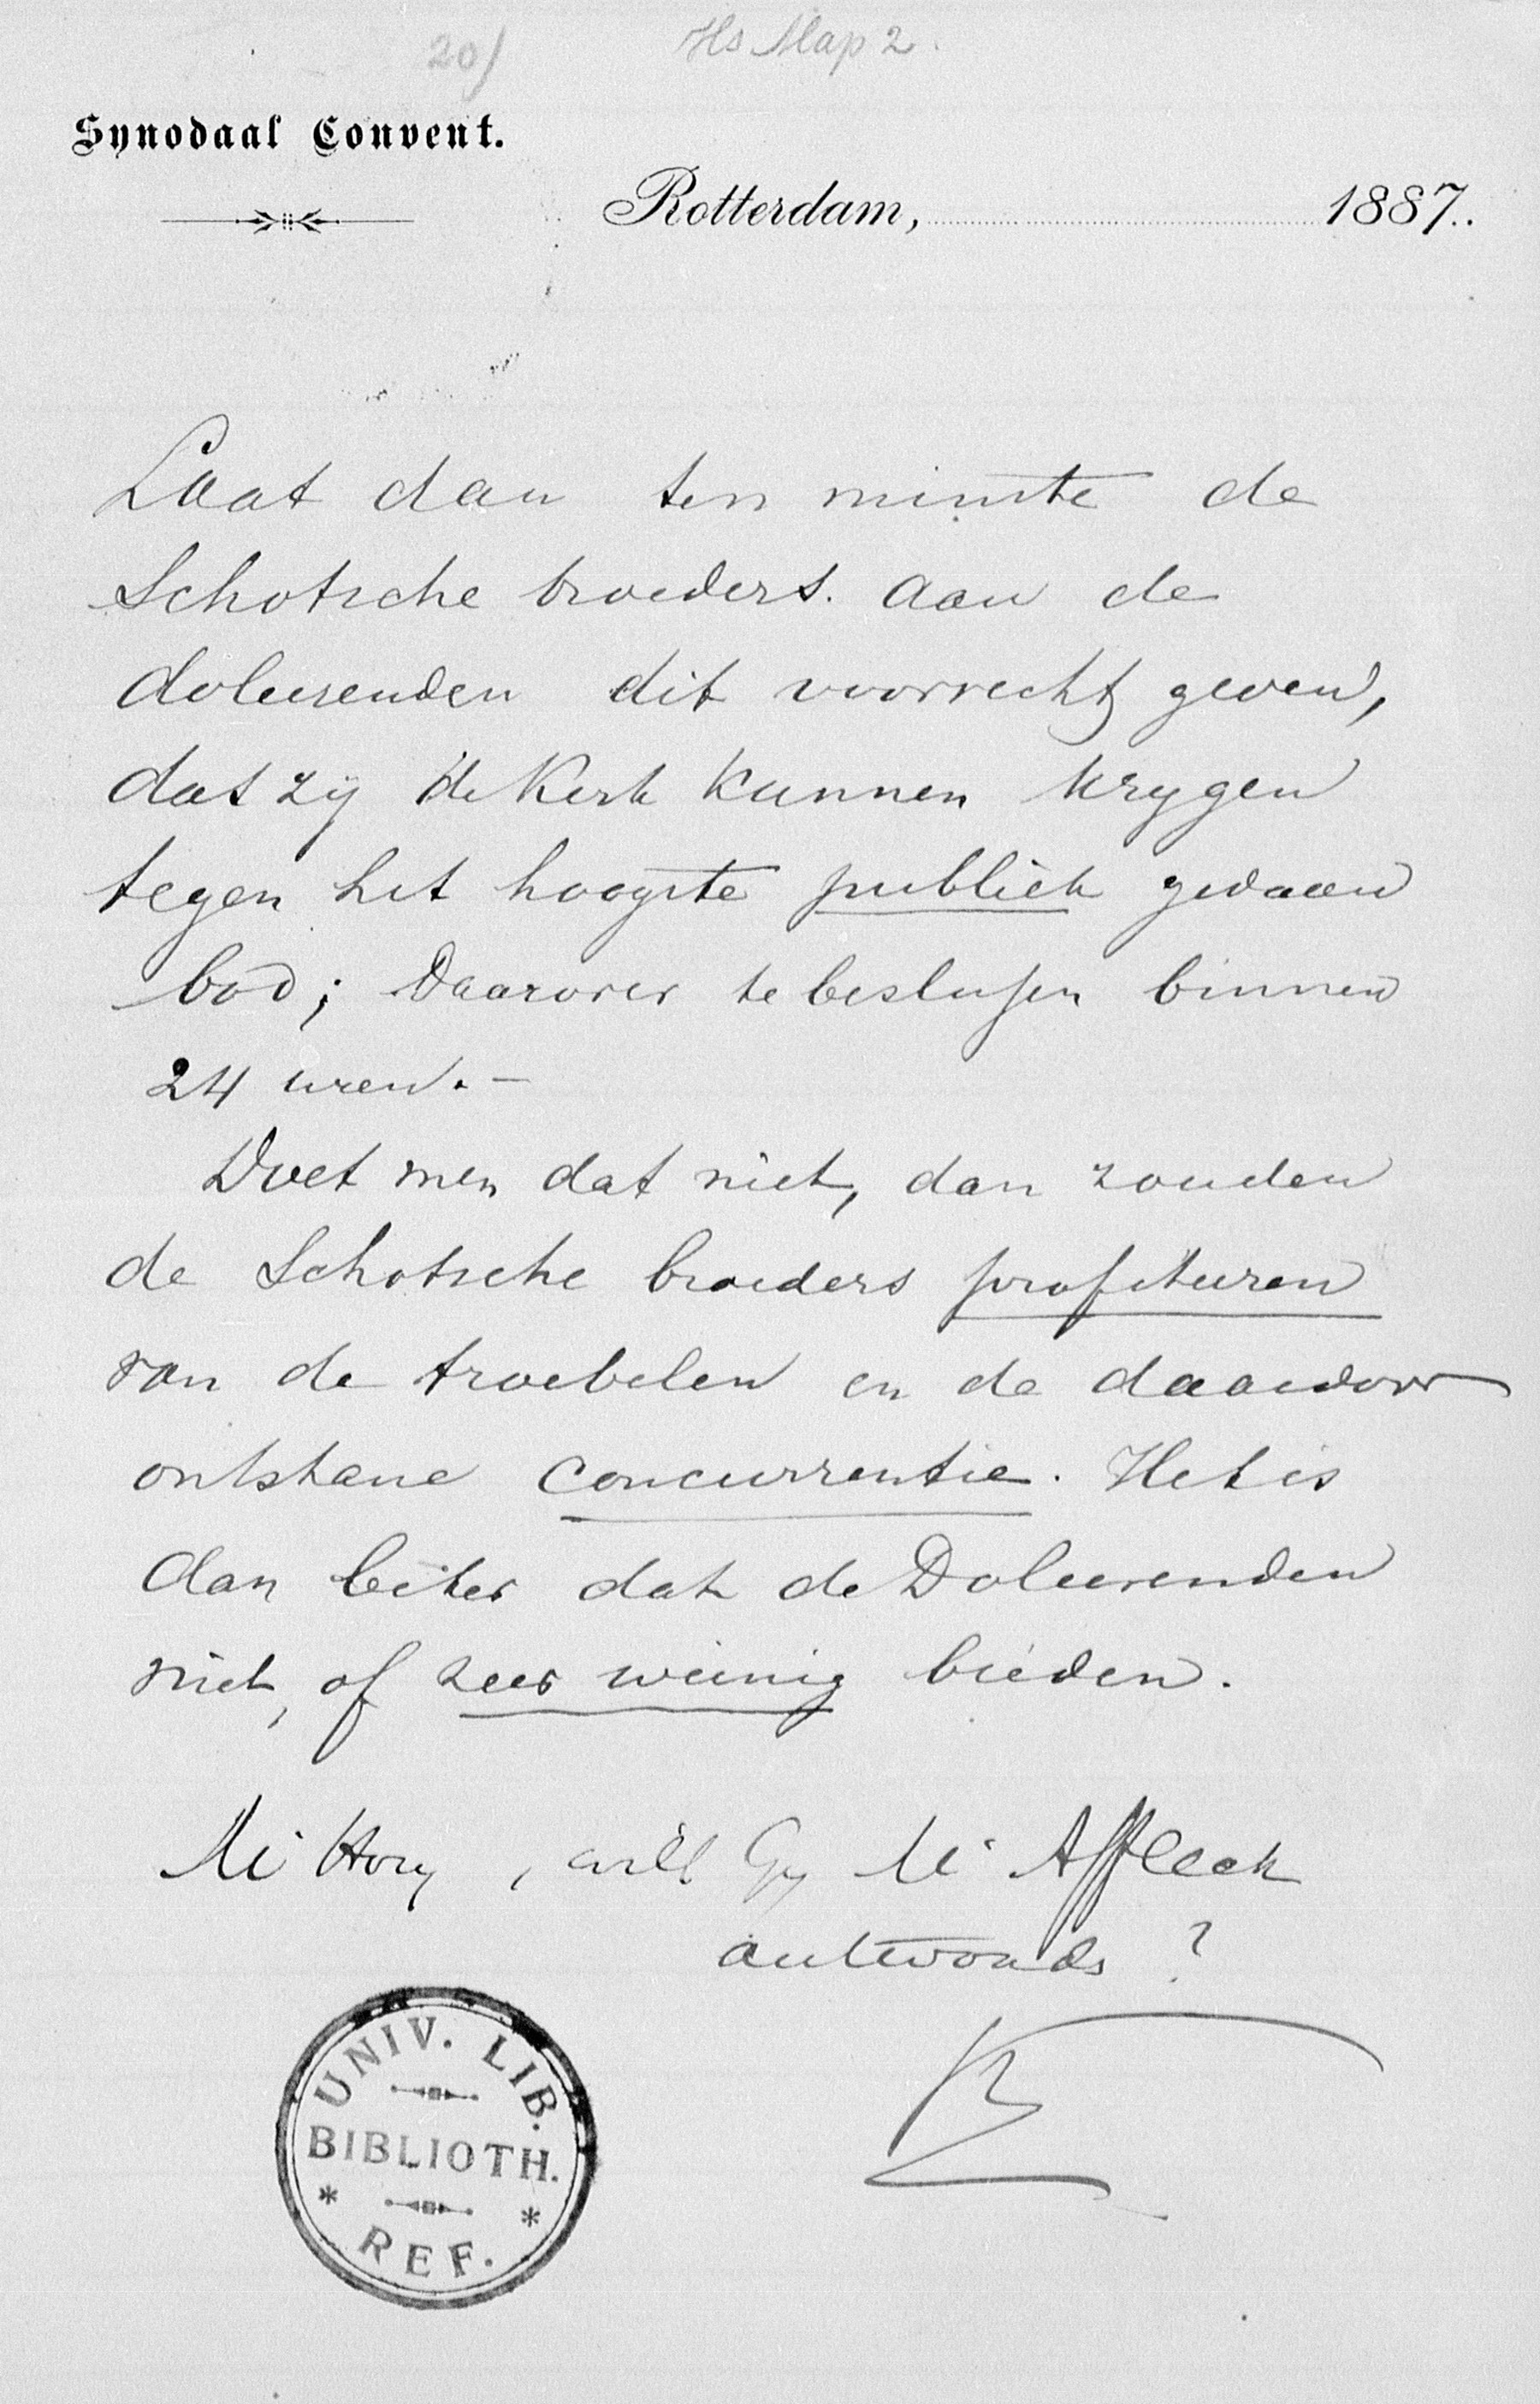 20/ Hs Map 2.
Synodaal Convent.
Rotterdam, 1887.
Laat dan ten minste de
Schotsche broeders. aan de
doleerenden dit voorrecht geven,
dat zij de Kerk kunnen krygen
tegen het hoogste publiek gedaan
bod; daarover te beslissen binnen
24 uren. -
Doet men dat niet, dan zouden
de Schotsche broeders profiteeren
van de troebelen en de daardoor
ontstane concurrentie. Het is
dan beter dat de Doleerenden
niet, of zeer weinig bieden.
, wilt Gy Mr Affleck
antwoorden ?
UNIV. LIB.
BIBLIOTH.
* REF. *